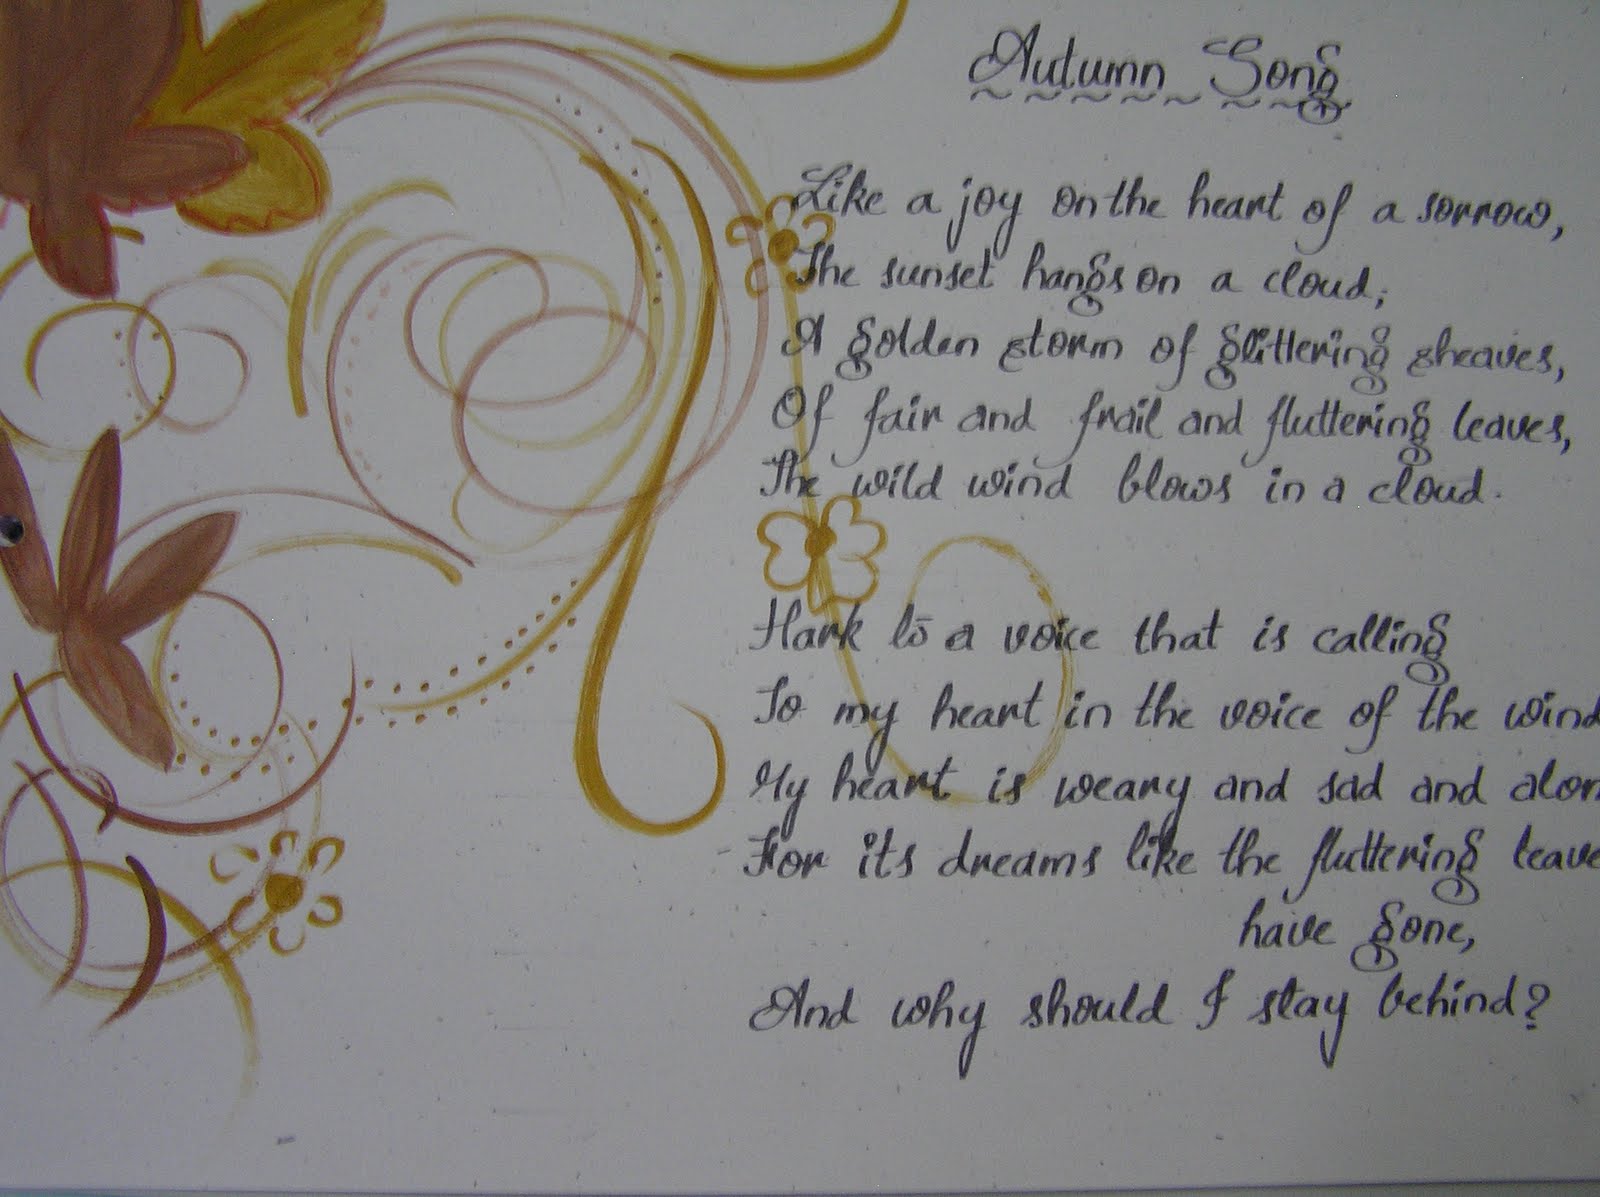 Autumn Song
Like a joy on the heart of a sorrow,
The sunset hangs on a cloud;
A golden storm of glittering sheaves,
Of fair and frail and fluttering leaves,
The wild wind blows in a cloud.
Hark to a voice that is calling
To my heart in the voice of the wind
My heart is weary and sad and alon
For its dreams like the fluttering leave
have gone,
And why should I stay behind?